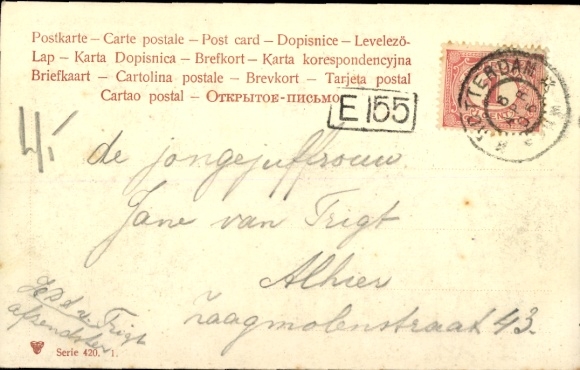 Postkarte – Carte postale – Post card – Dopisnice – Levelezö-
Lap – Karta Dopisnica – Brefkort – Karta korespondencyjna
Briefkaart – Cartolina postale – Brevkort – Tarjeta postal
Cartao postal – Открытое-письмо
E 155
ROTTERDAM
de jongejuffrouw
Jane van Trigt
Alhier
Zaagmolenstraat 43.
v Trigt
afzendster
Serie 420. 1.